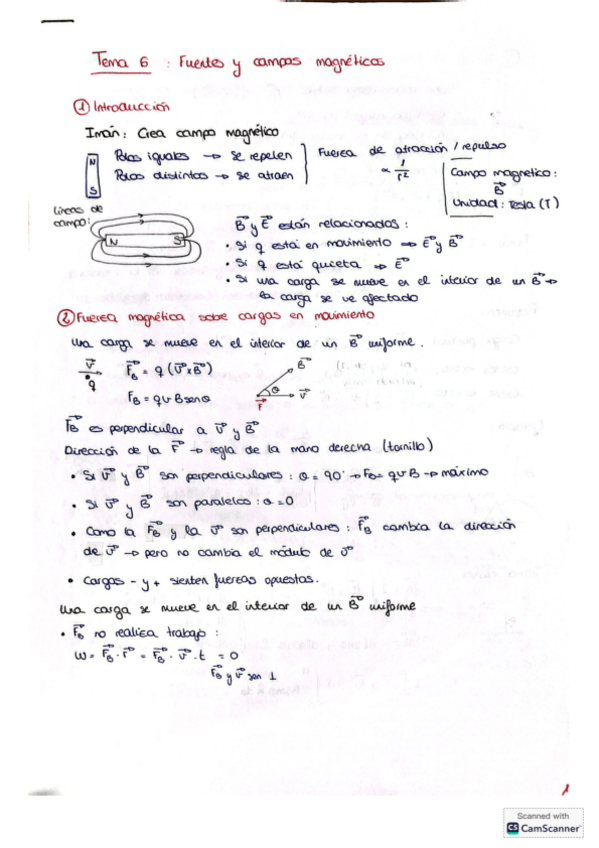 Tema 6 : Fuentes y campos magnéticos
① Introducción
Imán: Crea campo magnético
N
S
Polos iguales → se repelen
Polos distintos → se atraen
Fuerza de atracción / repulso
∝ 1/r²
Campo magnetico:
B⃗
Unidad: Tesla (T)
líneas de
campo:
N S
B⃗ y E⃗ están relacionados:
• Si q está en movimiento ⇒ E⃗ y B⃗
• Si q está quieta ⇒ E⃗
• Si una carga se mueve en el interior de un B⃗ →
la carga se ve afectado
② Fuerza magnética sobe cargas en movimiento
Una carga se mueve en el interior de un B⃗ uniforme.
v⃗
q
F⃗B = q (v⃗ x B⃗)
FB = qvB senθ
B⃗
θ
F⃗
v⃗
F⃗B es perpendicular a v⃗ y B⃗
Dirección de la F⃗ → regla de la mano derecha (tornillo)
• Si v⃗ y B⃗ son perpendiculares : θ = 90° → FB = qvB → máximo
• Si v⃗ y B⃗ son paralelos : θ = 0
• Como la F⃗B y la v⃗ son perpendiculares : F⃗B cambia la dirección
de v⃗ → pero no cambia el módulo de v⃗
• Cargas - y + sienten fuerzas opuestas.
Una carga se mueve en el interior de un B⃗ uniforme
• F⃗B no realiza trabajo :
W = F⃗B · r⃗ = F⃗B · v⃗ · t = 0
F⃗B y v⃗ son ⊥
1
Scanned with
CS CamScanner